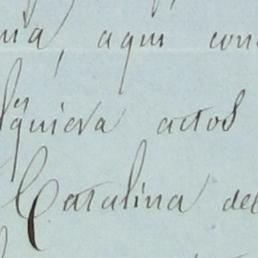 aqui con
quiera actos
Catalina del